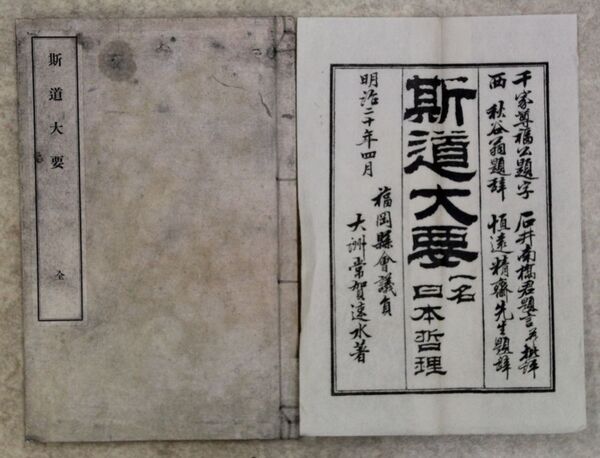 斯道大要 全
千家尊福公題字 石井南橋君題言并批評
西秋谷翁題辞 恒遠精齋先生題辞
斯道大要 一名日本哲理
明治二十年四月
福岡縣會議員
大洲常賀速水著